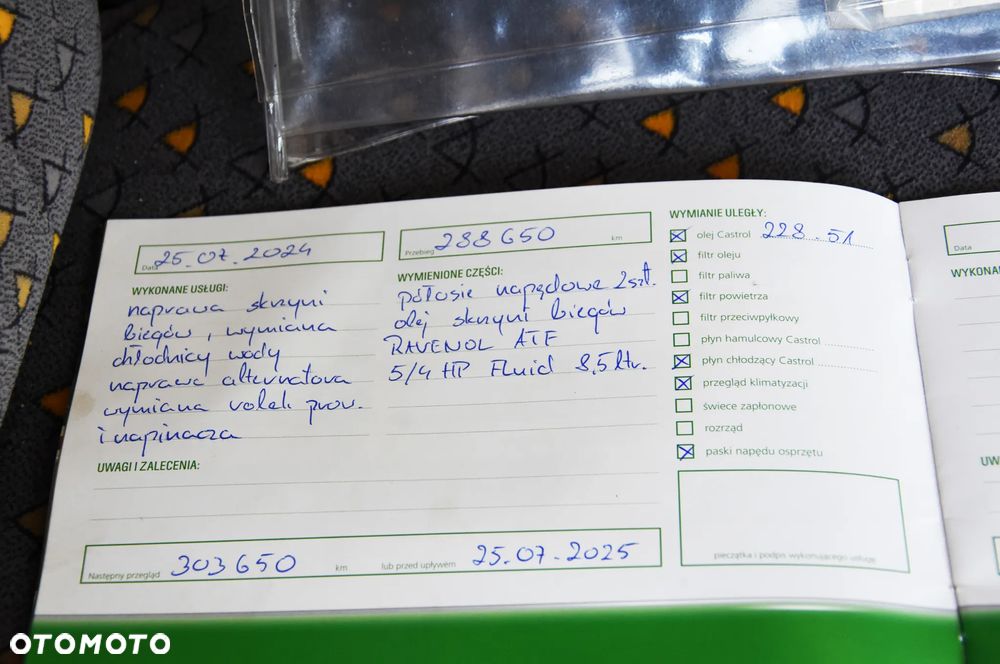 25.07.2024
Data
288650
Przebieg km
WYKONANE USŁUGI:
naprawa skrzyni
biegów, wymiana
chłodnicy wody
naprawa alternatora
wymiana rolek prow.
i napinacza
WYMIENIONE CZĘŚCI:
półosie napędowe 2szt.
olej skrzyni biegów
RAVENOL ATF
5/4 HP Fluid 8,5 ltr.
WYMIANIE ULEGŁY:
olej Castrol 228.51
filtr oleju
filtr paliwa
filtr powietrza
filtr przeciwpyłkowy
płyn hamulcowy Castrol
płyn chłodzący Castrol
przegląd klimatyzacji
świece zapłonowe
rozrząd
paski napędu osprzętu
UWAGI I ZALECENIA:
Następny przegląd 303650 km lub przed upływem 25.07.2025
pieczątka i podpis wykonującego usługę
Data
WYKONAN
UWAGI
Nas
OTOMOTO